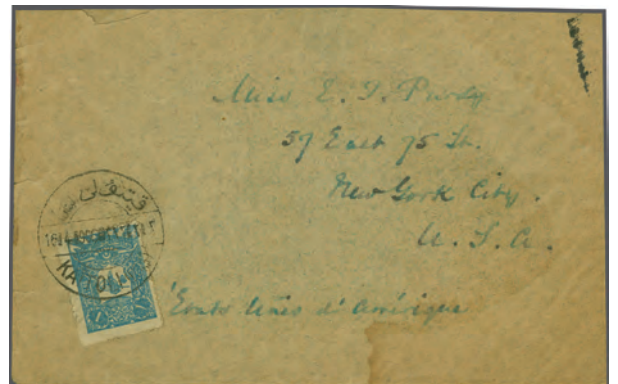 Miss E. D. Purdy
57 East 75 St.
New York City.
U. S. A.
Etats Unis d'Amérique